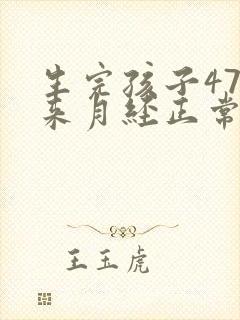 生完孩子47
来月经正常
王玉虎